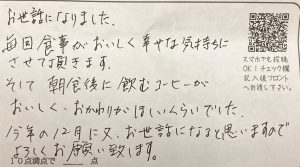 お世話になりました。
毎回食事がおいしく幸せな気持ちに
させて頂きます。
そして朝食後に飲むコーヒーが
おいしく、おかわりがほしいくらいでした。
今年の12月に又、お世話になると思いますので
よろしくお願い致します。
10点満点で＿＿点
スマホで免投稿
OK！チェック欄
記入後フロント
へお渡し下さい。